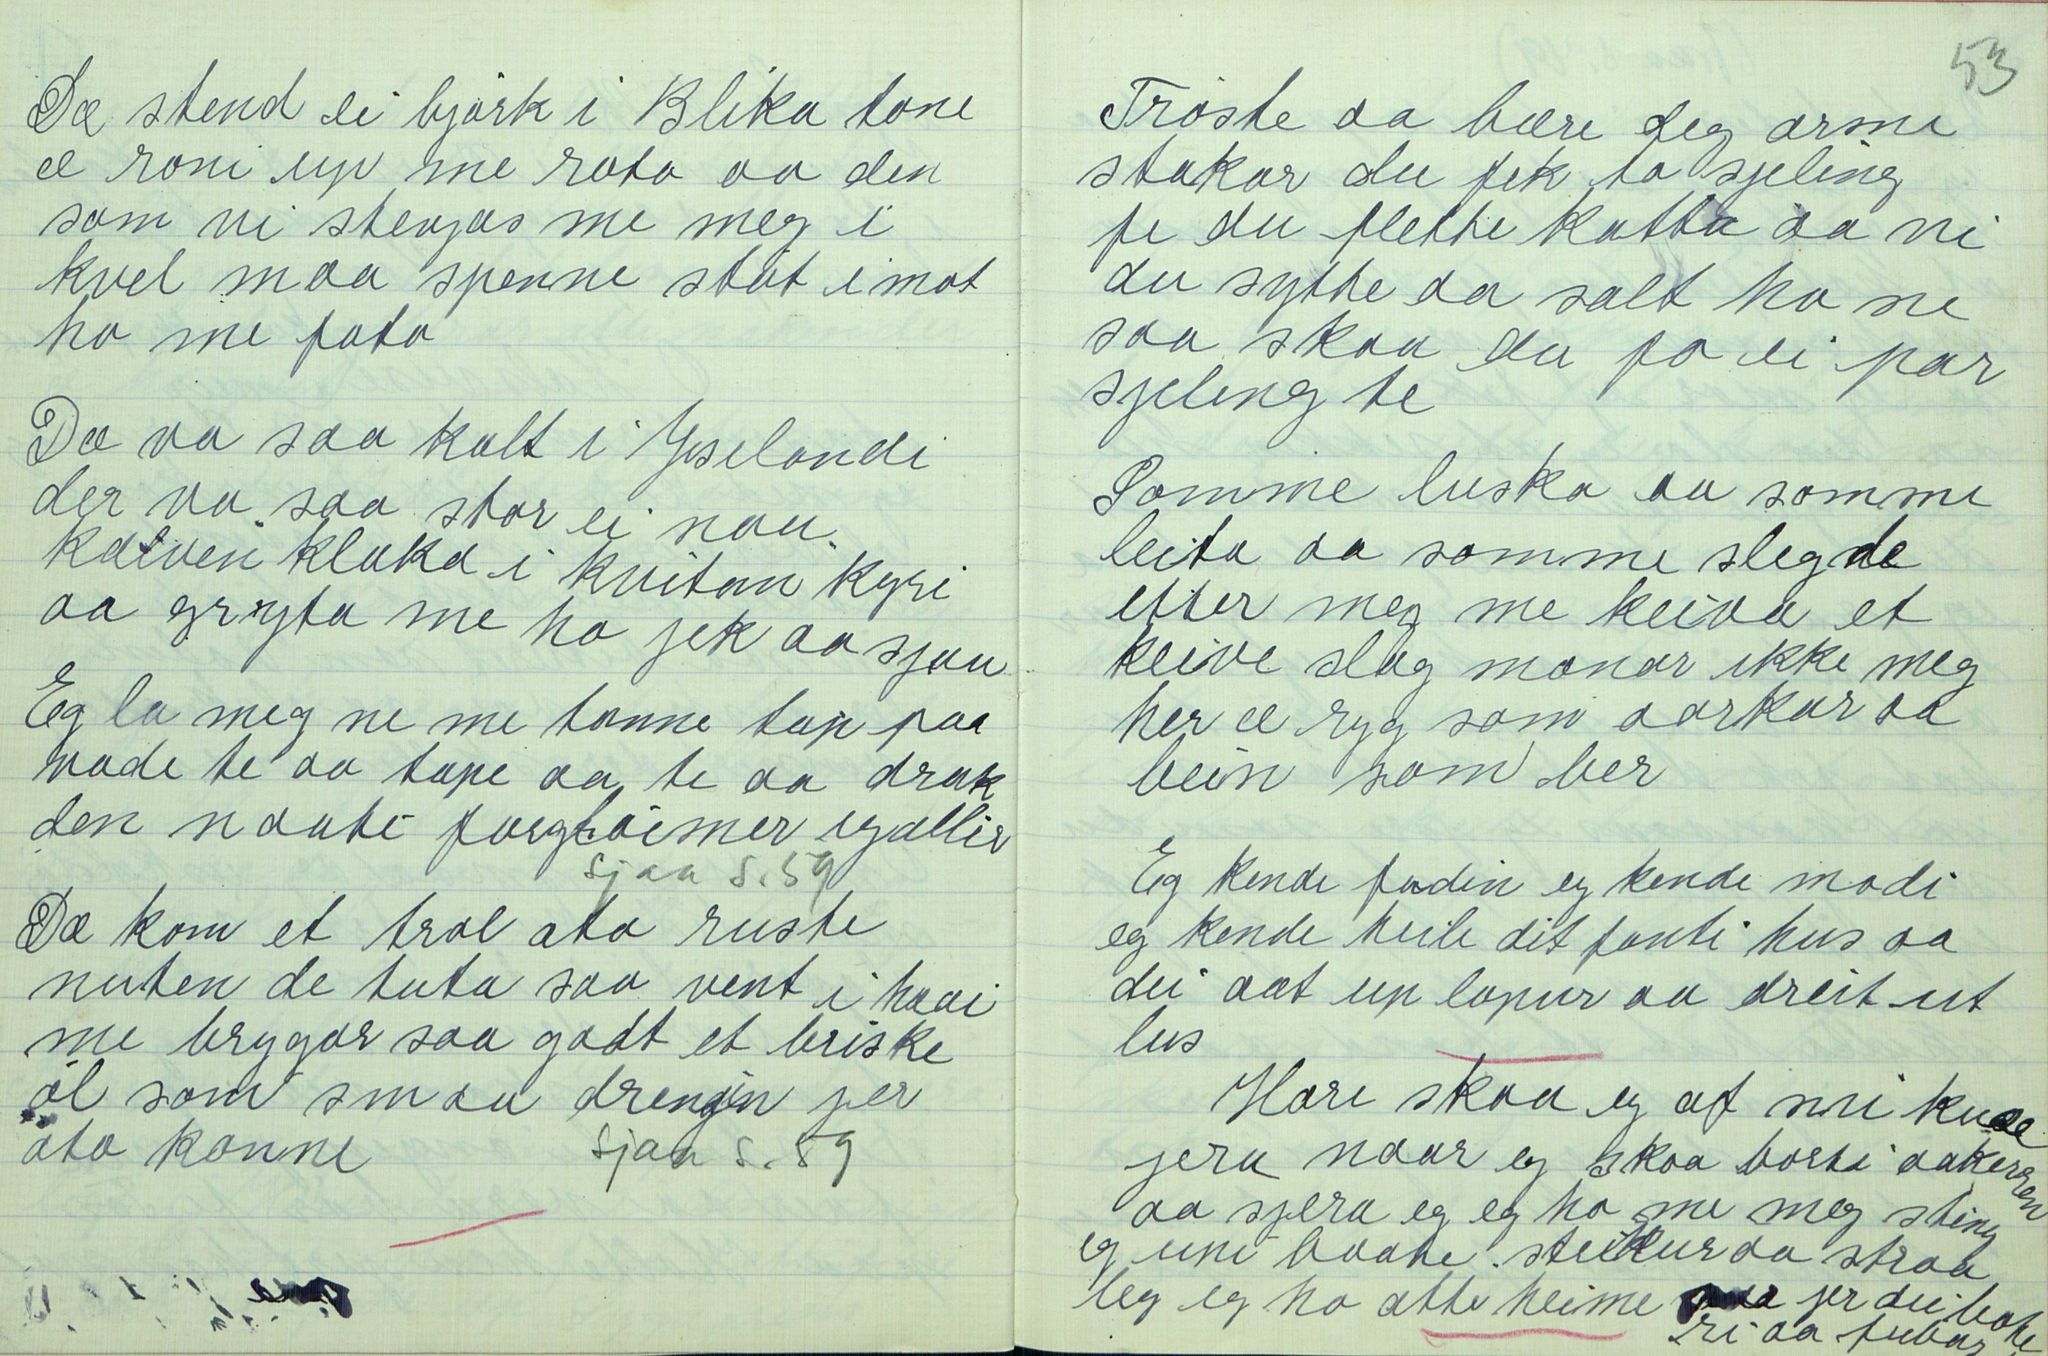 Dæ stend ei bjørk i Blika tone
æ roni up me rota aa den
som vi stengas me meg i
kvel maa spenne støt imot
ho me fota
Dæ va saa kalt i Yselandi
der va saa stor ei nau
kalven klaka i kvitan kyri
aa gryta me ho jek aa sjau
Eg la meg ne me tonne tap paa
vade te aa tape aa te aa drak
den naate forgløimer eg aller
Sjaa s. 59
Dæ kom et trol ata ruste
nuten de tuta saa vent i haai
me brygar saa godt et briske
øl som smaa drengin jer
ata konne
Sjaa s. 59
53
Trøste aa bære deg arme
stakar du fek to sjeling
fe du flette katta aa vi
du sytte aa salt ho ne
saa skaa du fo ei par
sjeling te
Somme luska aa somme
leita aa somme slegde
etter meg me keiva et
keive slag monar ikke meg
her æ ryg som aarkar aa
bein som ber
Eg kende fadin eg kende modi
eg kende heile dit fanti hus aa
dei aat up lopur aa dreit ut
lus
Hore skaa eg af mi kuæ
jera naar eg skaa borti aakerren
aa sjera eg eg ho me meg sting
eg uni baate steikur aa straa
leg eg ho atte heime jer dei baate
ri aa